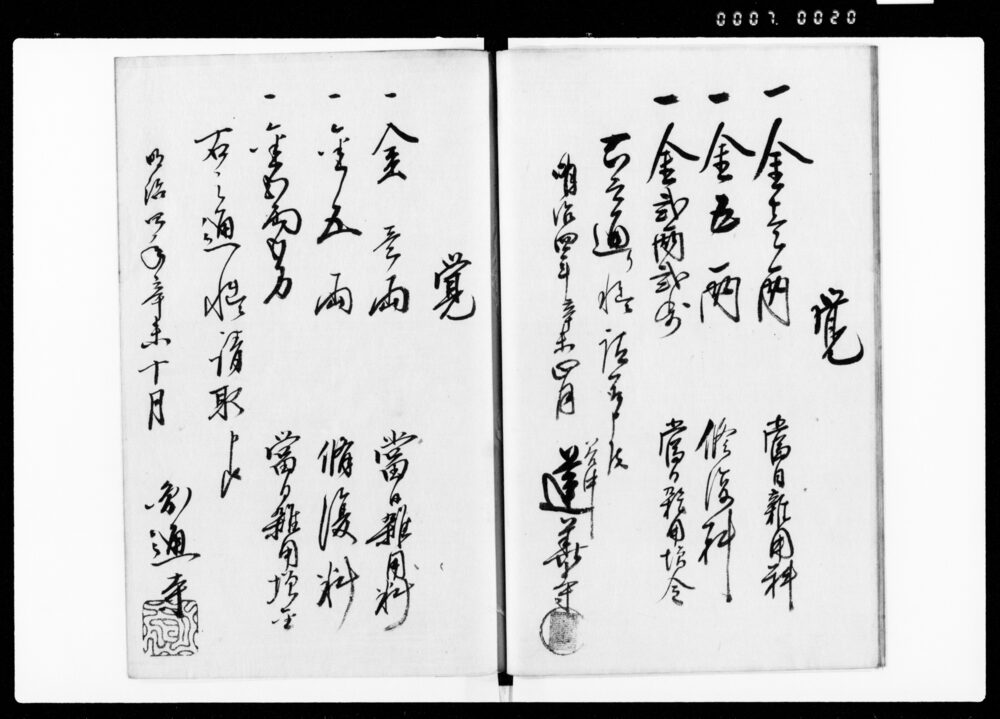 0007. 0020
覚
一 金壱両 當日雑用料
一 金五両 修復料
一 金弐両弐分 當日雑用増金
右之通り慥請取申候
明治四年辛未正月
蓮義寺
覚
一 金壱両 當日雑用料
一 金五両 脩復料
一 金 當日雑用増金
右之通慥請取申候
明治四年辛未十月
通寺